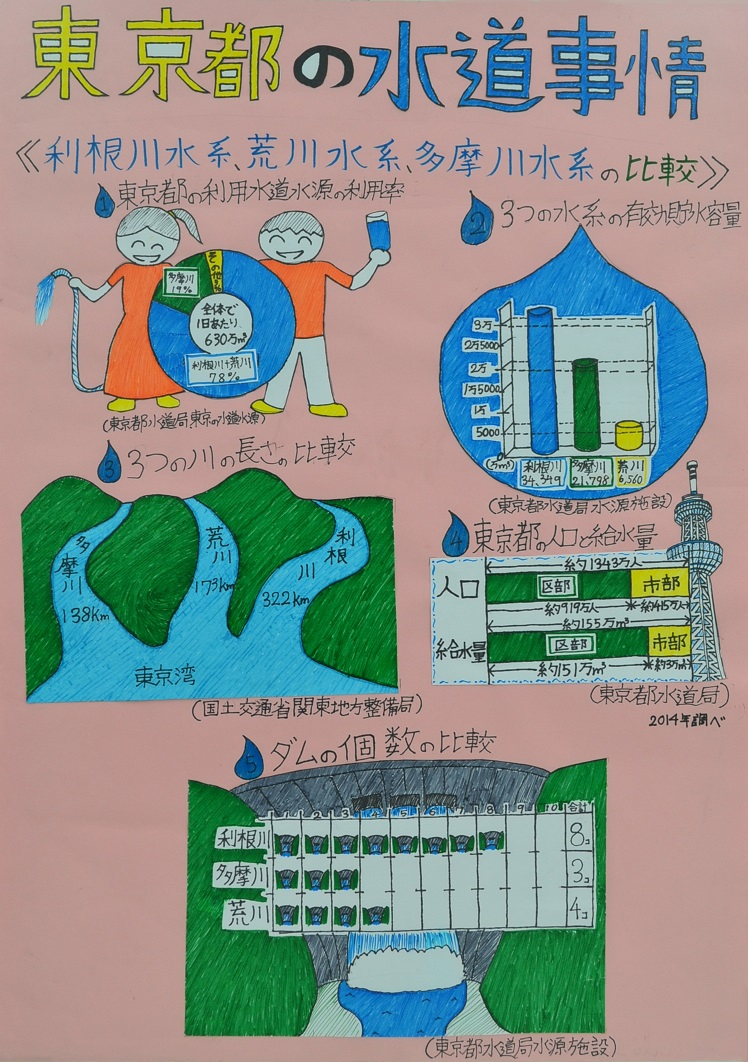 東京都の水道事情
《利根川水系、荒川水系、多摩川水系の比較》
1 東京都の利用水道水源の利用率
多摩川
19%
その他
3%
全体で
1日あたり
630万m³
利根川+荒川
78%
(東京都水道局東京の水道水源)
2 3つの水系の有効貯水容量
3万
2万5000
2万
1万5000
1万
5000
0
(万m³)
利根川
34,349
多摩川
21,798
荒川
6,560
(東京都水道局水源施設)
3 3つの川の長さの比較
多摩川
138km
荒川
173km
利根川
322km
東京湾
(国土交通省関東地方整備局)
4 東京都の人口と給水量
約1343万人
人口
区部
市部
約919万人
約415万人
約155万m³
給水量
区部
市部
約151万m³
約3万m³
(東京都水道局)
2014年調べ
5 ダムの個数の比較
1 2 3 4 5 6 7 8 9 10 合計
利根川 8コ
多摩川 3コ
荒川 4コ
(東京都水道局水源施設)